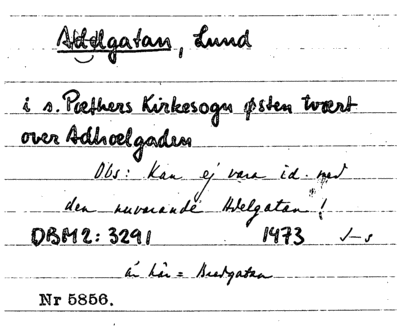 Adelgatan, Lund
i s. Pæthers Kirkesogn østen tvært
over Adhælgaden
Obs: Kan ej vara id. med
den nuvarande Adelgatan!
DBM 2: 3291 1473 J-s
är här = Bredgatan
Nr 5856.